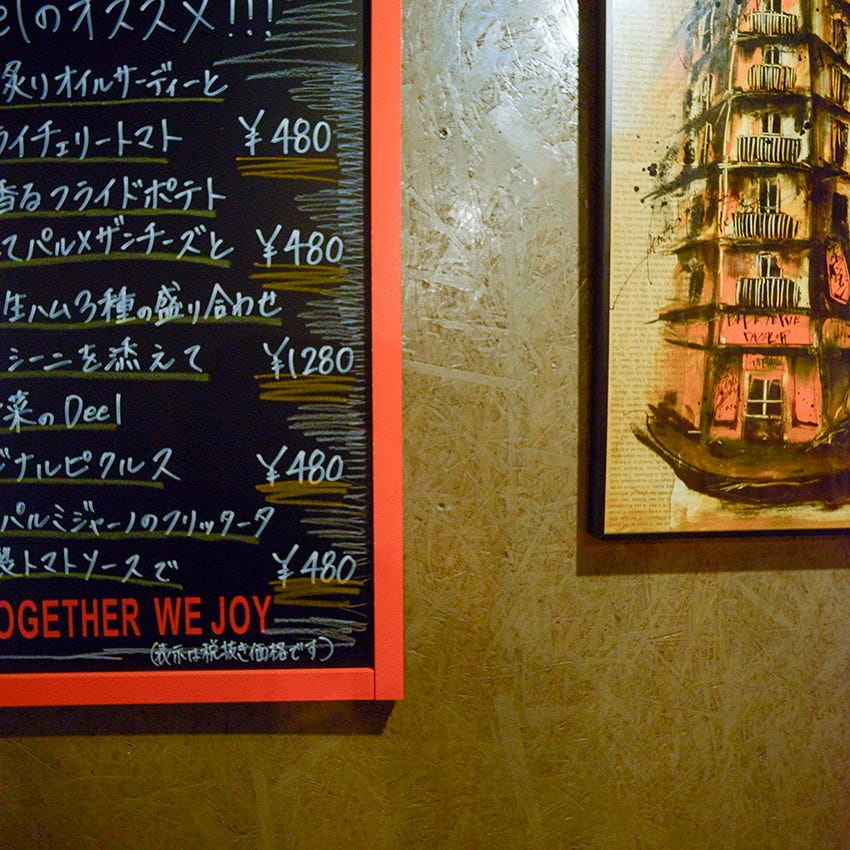 elのオススメ!!!
炙りオイルサーディーと
ライチェリートマト ¥480
香るフライドポテト
てパルメザンチーズと ¥480
生ハム3種の盛り合わせ
シーニを添えて ¥1280
菜のDeel
ジナルピクルス ¥480
パルミジャーノのフリッタータ
製トマトソースで ¥480
OGETHER WE JOY
(表示は税抜き価格です)